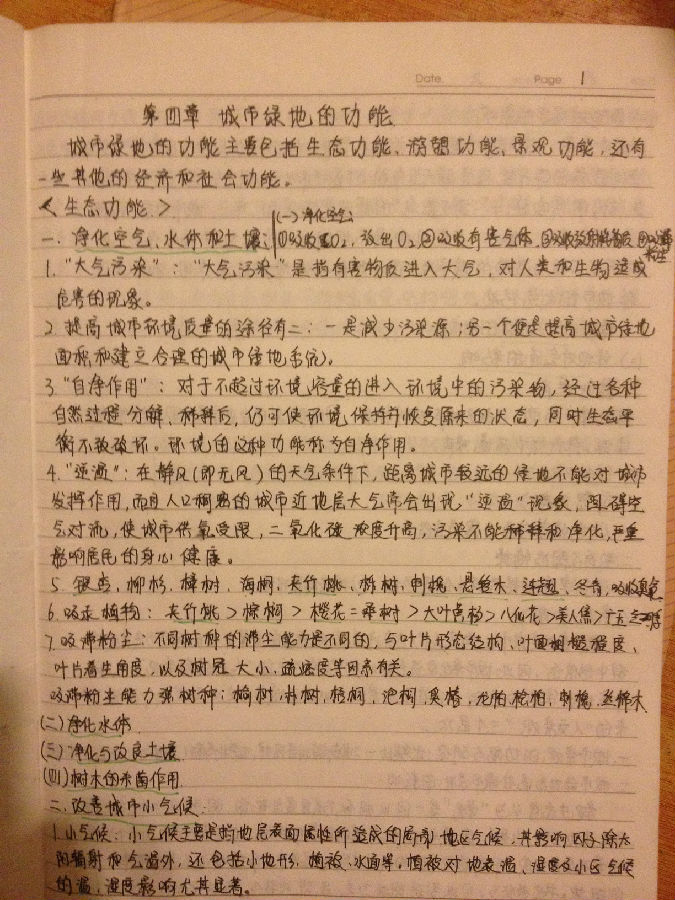 Date. Page. 1
第四章 城市绿地的功能
城市绿地的功能主要包括生态功能、游憩功能、景观功能,还有
一些其他的经济和社会功能。
<生态功能.>
(一)净化空气:
一. 净化空气、水体和土壤: ①吸收CO₂,放出O₂ ②吸收有害气体, ③吸收放射性物质 ④吸滞粉尘
1. “大气污染”:“大气污染”是指有害物质进入大气,对人类和生物造成
危害的现象。
2. 提高城市环境质量的途径有二:一是减少污染源;另一个便是提高城市绿地
面积和建立合理的城市绿地系统。
3. “自净作用”:对于不超过环境容量的进入环境中的污染物,经过各种
自然过程分解、稀释后,仍可使环境保持并恢复原来的状态,同时生态平
衡不致破坏。环境的这种功能称为自净作用。
4. “逆温”:在静风(即无风)的天气条件下,距离城市较远的绿地不能对城市
发挥作用,而且人口稠密的城市近地层大气常会出现“逆温”现象,阻碍空
气对流,使城市供氧受限,二氧化碳浓度升高,污染不能稀释和净化,严重
影响居民的身心健康。
5. 银杏,柳杉,樟树,海桐,夹竹桃、刺槐、悬铃木、连翘、冬青,吸收臭氧
6. 吸汞植物:夹竹桃>棕榈>樱花=桑树>大叶黄杨>八仙花>美人蕉>
7. 吸滞粉尘:不同树种的滞尘能力是不同的,与叶片形态结构、叶面粗糙程度、
叶片着生角度,以及树冠大小、疏密度等因素有关。
吸滞粉尘能力强树种:榆树,朴树,梧桐,泡桐,臭椿,龙柏,桧柏,刺槐,丝棉木
(二)净化水体
(三)净化与改良土壤
(四)树木的杀菌作用
二. 改善城市小气候:
1. 小气候:小气候主要是指地层表面属性所造成的局部地区气候,其影响因子除太
阳辐射和气温外,还包括小地形,植被、水面等,植被对地表温、湿度及小区气候
的温,湿度影响尤其显著。